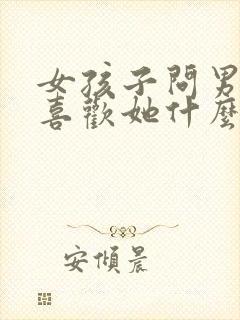 女孩子問男
喜歡她什麼
安傾晨